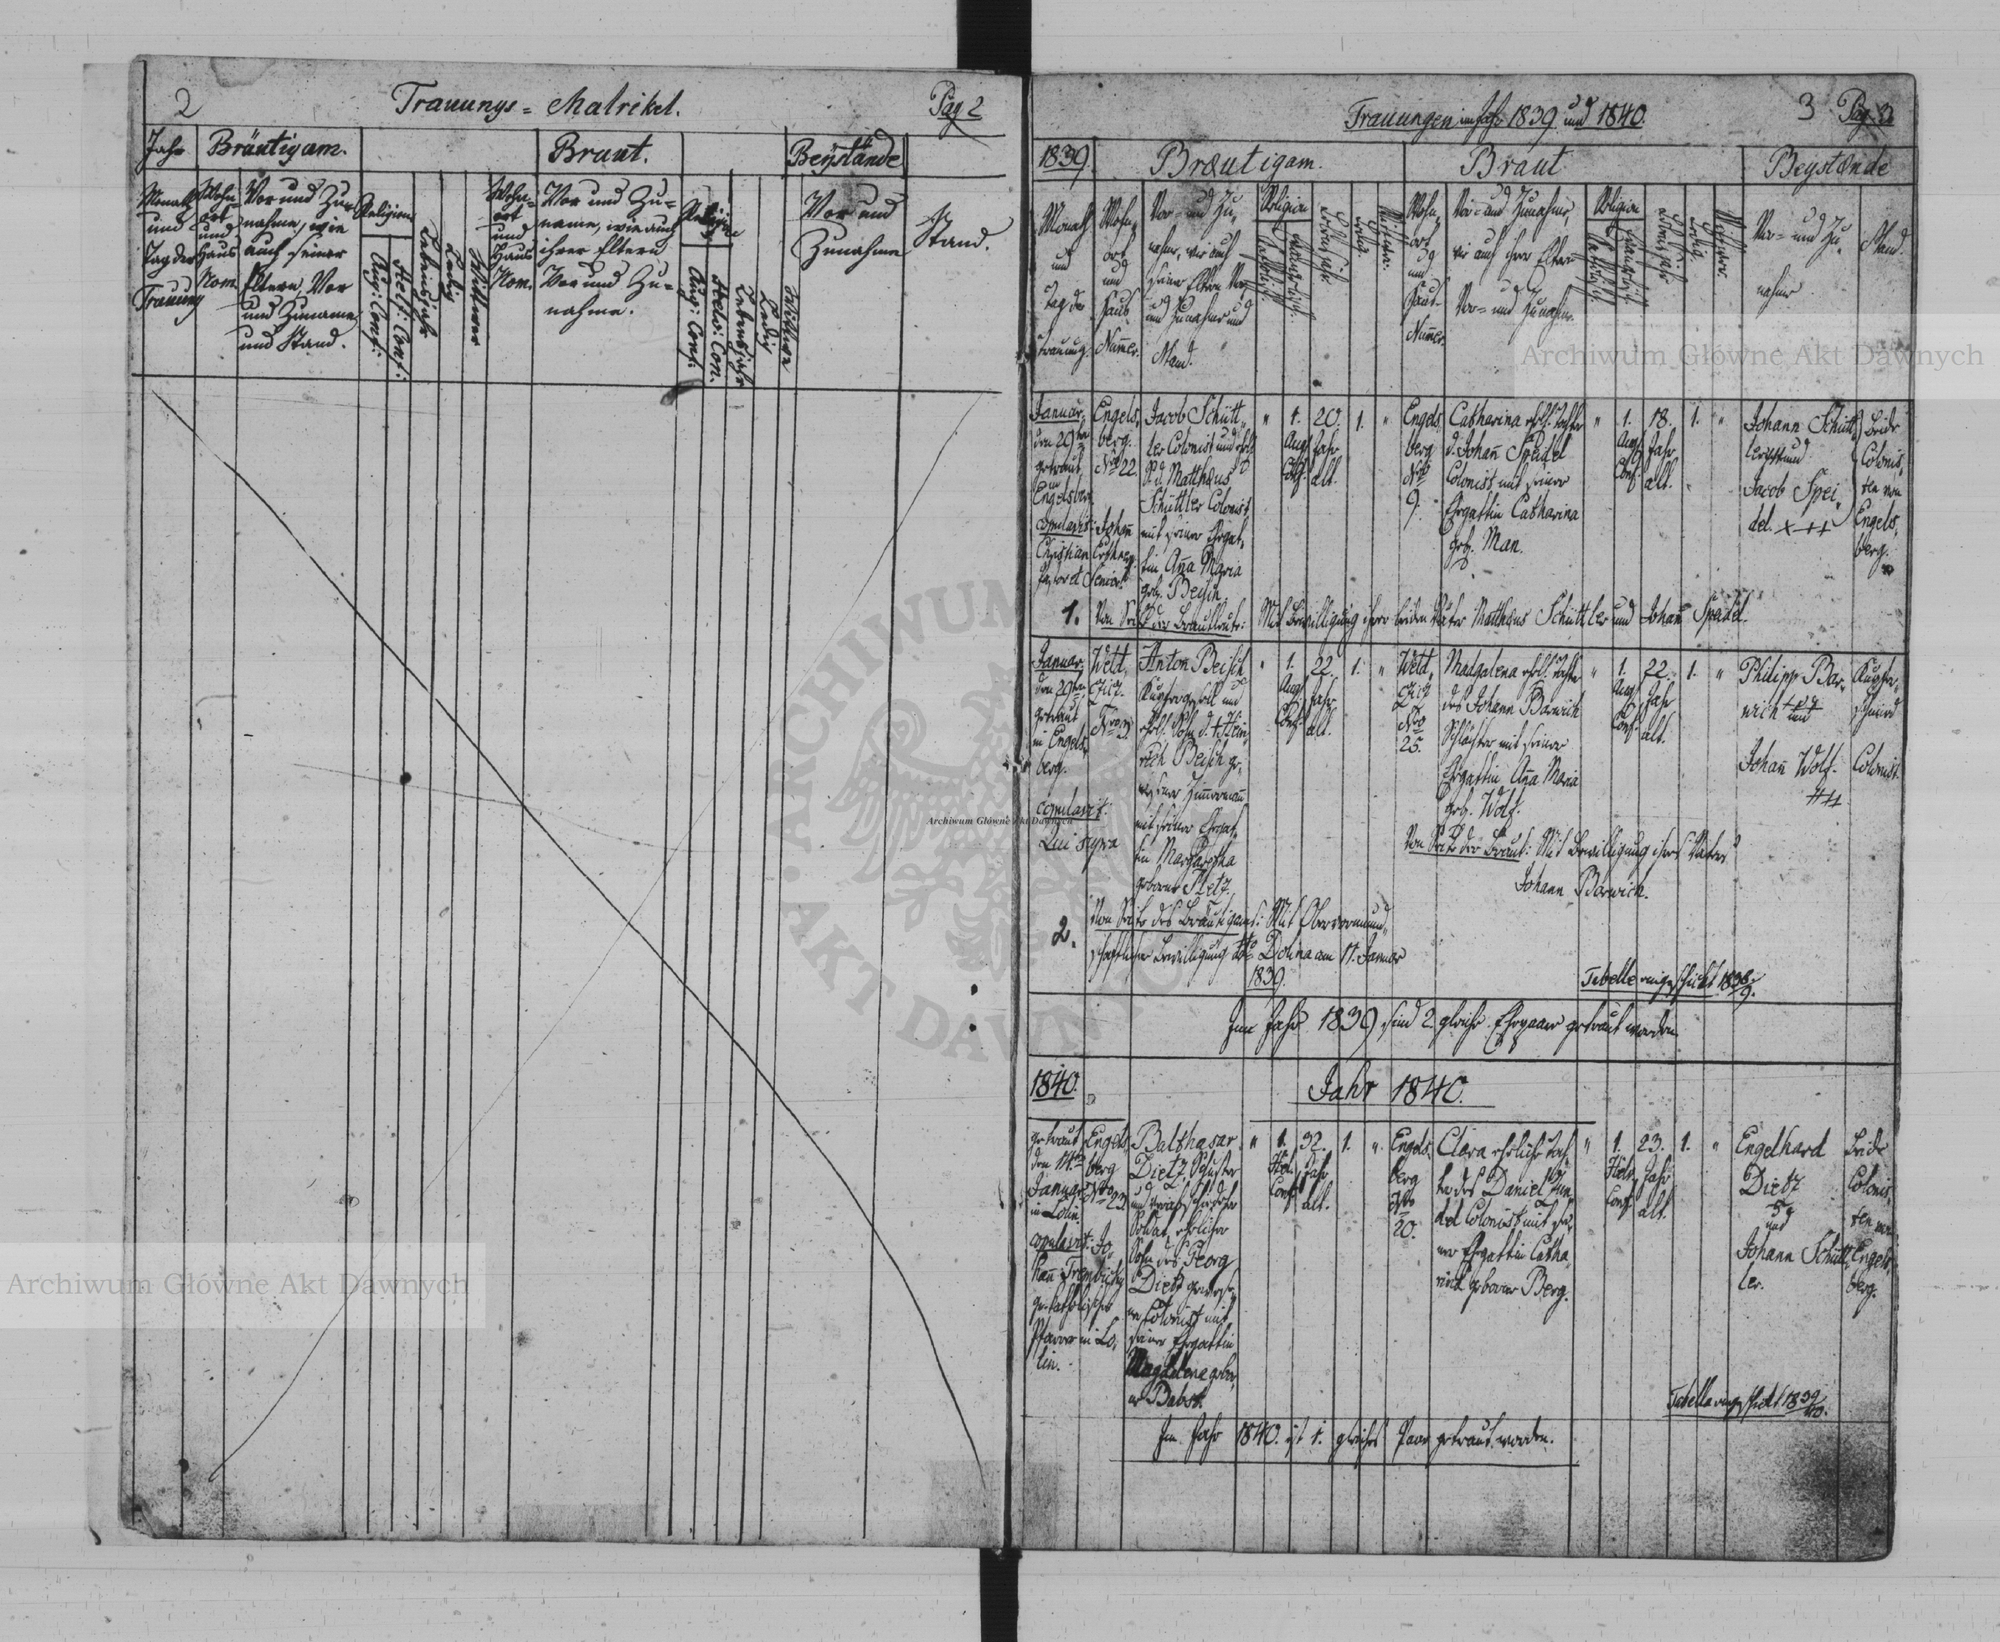 2
Trauungs = Matrikel.
Pag 2
Jahr
Bräutigam.
Braut.
Beÿstände
Monath
und
Tag der
Trauung
Wohn-
ort
und
Haus
Nom.
Vor und Zu-
nahme, wie
auch seiner
Eltern, Vor
und Zuname
und Stand.
Religion
Aug: Conf:
Helv: Conf:
Lebensjahr
Ledig
Wittwer
Wohn-
ort
und
Haus
Nom.
Vor und Zu-
name, wie auch
ihrer Eltern
Vor und Zu-
nahme.
Religion
Aug: Conf:
Helv: Con.
Lebensjahr
Ledig
Vor und
Zunahme
Stand.
Trauungen im Jahr 1839 und 1840.
3
Pag 3
1839.
Bräutigam.
Braut
Beystände
Monath
und
Tag der
Trauung.
Wohn-
ort
und
Haus
Numer.
Vor- und Zu-
nahme, wie auch
seiner Eltern Vor-
und Zunahme und
Stand.
Religion
Katholisch
Lebensjahr
Ledig
Wittwer
Wohn-
ort
und
Haus-
Numer.
Vor- und Zunahme,
wie auch ihrer Eltern
Vor- und Zunahme.
Religion
Katholisch
Lebensjahr
Ledig
Wittwe
Vor- und Zu-
nahme
Stand.
Januar.
den 29ten
getraut
in
Engelsberg
copulavit: Johann
Christian
Pastor et Senior
Engels,
berg.
Nro 22.
Jacob Schütt,
ler Colonist und ehel.
S. d. Matthäus
Schüttler Colonist
mit seiner Ehegat,
tin Anna Maria
geb. Beisch
" 1. 20. 1. "
Aug. Jahr
Conf. alt.
Engels,
berg
Nro
9.
Catharina ehel. Tochter
d. Johann Speidel
Colonist mit seiner
Ehegattin Catharina
geb. Man.
" 1. 18. 1. "
Aug. Jahr
Conf. alt.
Johann Schütt,
ler und
Jacob Spei,
del. x++
Beide
Colonis,
ten von
Engels,
berg.
1. Von Seite der Brautleute: Mit Bewilligung ihrer beiden Väter Matthäus Schüttler und Johann Speidel.
Januar.
den 29ten
getraut
in Engels,
berg.
copulavit:
Qui supra
Weld,
Nro
Anton Beisch
und
ehel. Sohn d. + Hein,
rich Beisch ge,
wesener Zimmermann
mit seiner Ehegat,
tin Margaretha
geborene Pletz.
" 1. 22. 1. "
Aug. Jahr
Conf. alt.
Weld,
Nro
25.
Magdalena ehel. Tochter
des Johann Barwich
mit seiner
Ehegattin Anna Maria
geb. Wolf.
" 1. 22. 1. "
Aug. Jahr
Conf. alt.
Philipp Bar,
wich +++
und
Johann Wolf.
+++
Kupfer,
schmied
Colonist
Von Seite der Braut: Mit Bewilligung ihres Vaters
Johann Barwich.
2. Von Seite des Bräutigams: Mit Obervormund,
schaftlicher Bewilligung ddto Dolina am 17. Januar
1839.
Tabelle eingeschickt 1838/9.
Im Jahr 1839 sind 2 gleiche Ehepaare getraut worden.
1840.
Jahr 1840.
getraut
den 14ten
Januar
in
copulavit: Jo,
hann
gr. katholischer
Pfarrer in Lo,
lin.
Engels,
berg
Nro 23
Balthasar
Dietz, Schuster
und
Soldat, ehelicher
Sohn des Georg
Dietz gewese,
ner Colonist mit
seiner Ehegattin
Magdalena gebor,
ne Babst.
" 1. 32. 1. "
Helv. Jahr
Conf. alt.
Engels,
berg
Nro
20.
Clara eheliche Toch,
ter des Daniel
Colonist mit sei,
ner Ehegattin Catha,
rina geborene Berg.
" 1. 23. 1. "
Helv. Jahr
Conf. alt.
Engelhard
Dietz
und
Johann Schütt,
ler.
Beide
Colonis,
ten von
Engels,
berg.
Tabelle eingeschickt 1839/40.
Im Jahr 1840. ist 1. gleiches Paar getraut worden.
Archiwum Główne Akt Dawnych
Archiwum Główne Akt Dawnych
Archiwum Główne Akt Dawnych
ARCHIWUM
AKT DAWNYCH